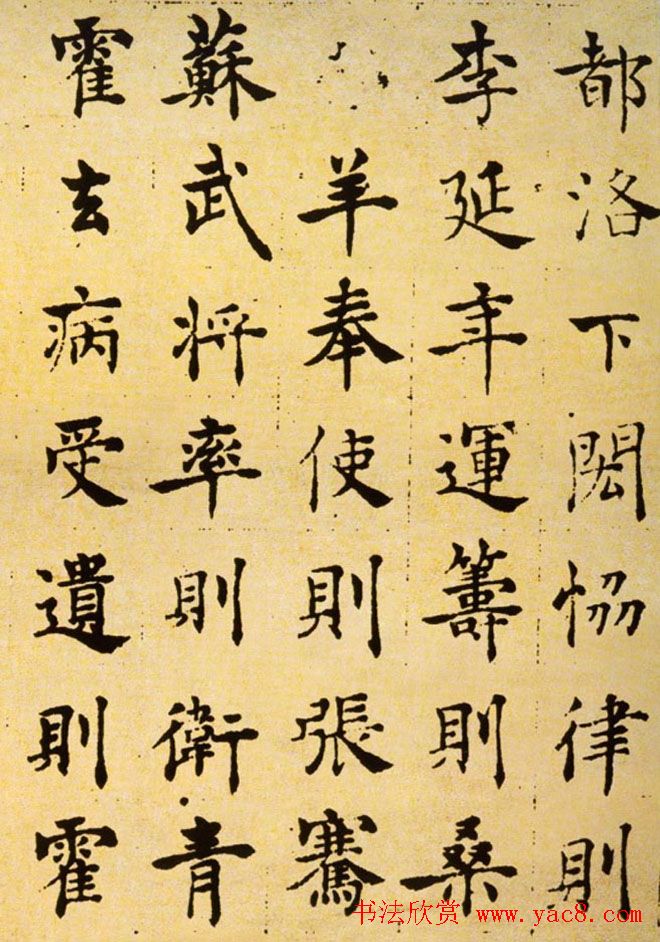 都洛下閎恊律則
李延年運籌則桑
羊奉使則張騫
蘇武將率則衛青
霍去病受遺則霍
书法欣赏 www.yac8.com